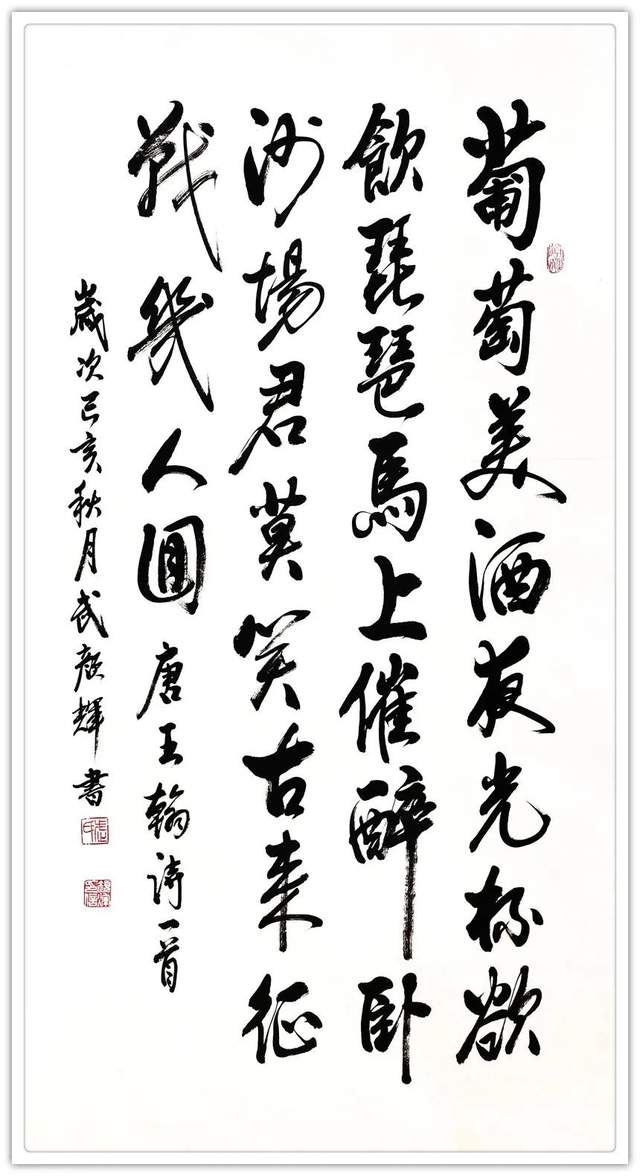 葡萄美酒夜光杯欲
飲琵琶馬上催醉卧
沙場君莫笑古來征
戰幾人回唐王翰詩一首
歲次己亥秋月武彦輝書